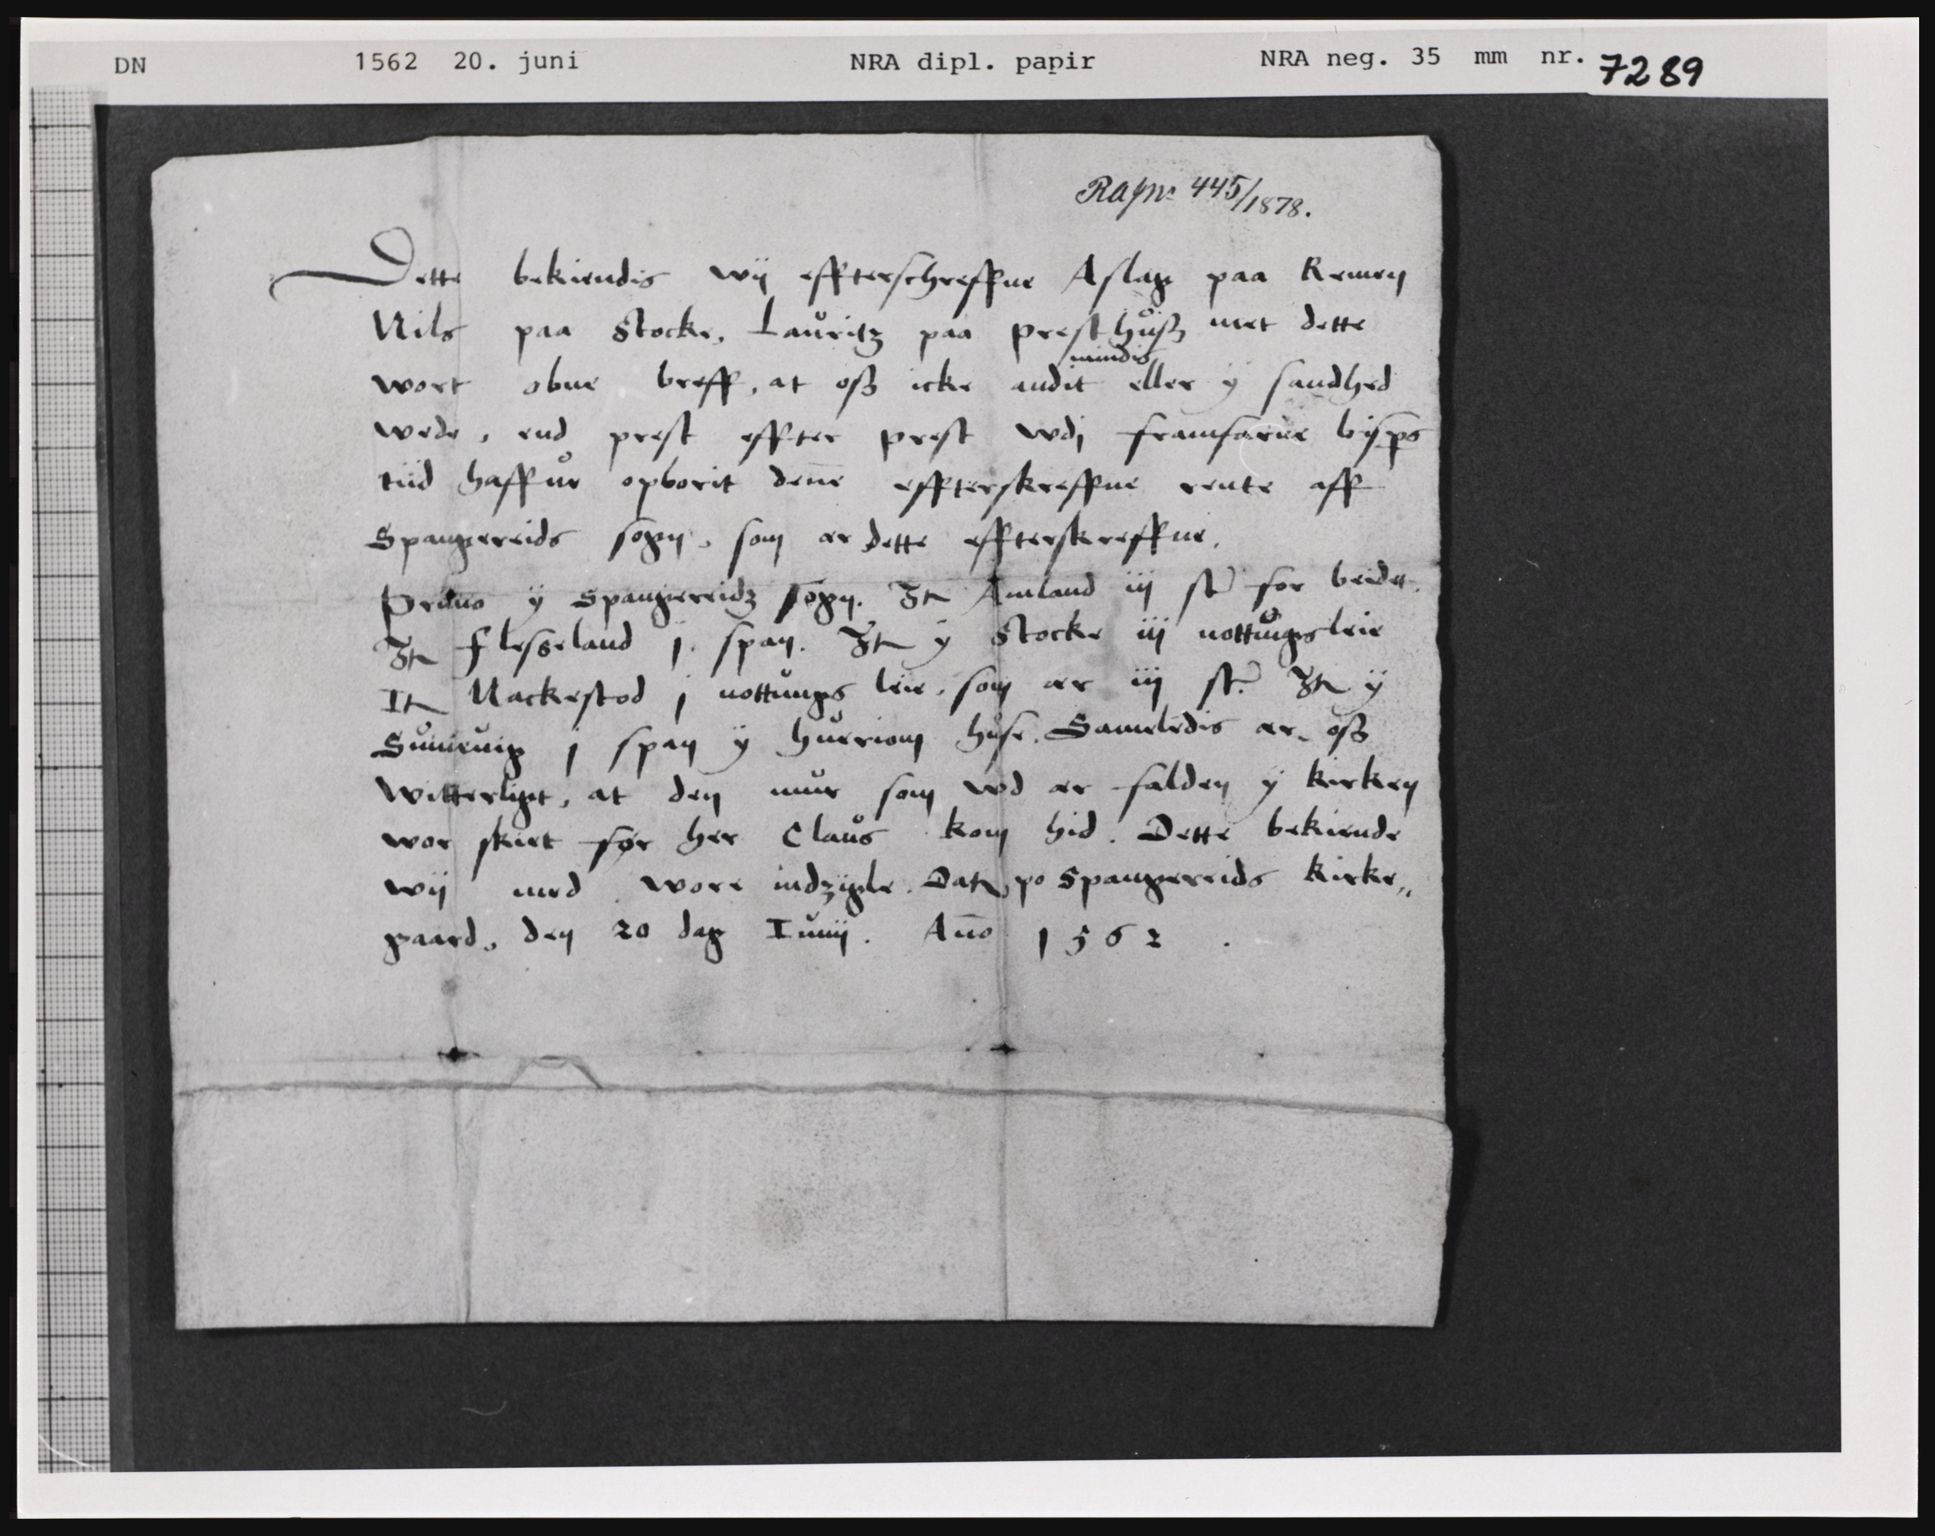 DN 1562 20. juni NRA dipl. papir NRA neg. 35 mm nr. 7289
445/1878.
Dette bekiendis wij effterschreffne Aslag paa Remen
Nils paa Stocke, Lauritz paa presthuss met dette
mindis
wort obne breff, at oss icke andit eller y sandhed
wede, end prest effter prest wdj framfarne bysps
tiid haffur opborit denne effterskreffne rente aff
Spangereids sogn, som er dette effterskreffne.
y Spangiereidz sogn. Jt Amland iij for beide
Jt Flesseland j span. Jt y Stocke iij nottungsleie
It Nackestod j nottungs leie, som er iij Jt y
j span y hueriom huse. Sameledis er oss
witterligt, at den mur som wd er falden y kirken
wor skiet før her Claus kom hid. Dette bekiende
wij med wore indzigle. Dat po Spangereids kirke,,
gaard, den 20 dag Iunij. Ano 1562.